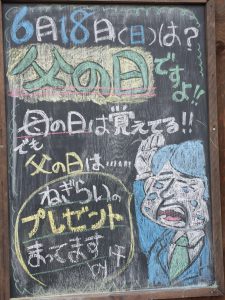 6月18日(日)は?
父の日ですよ!!
母の日は覚えてる!!
でも
父の日は……
ねぎらいの
プレゼント
まってます